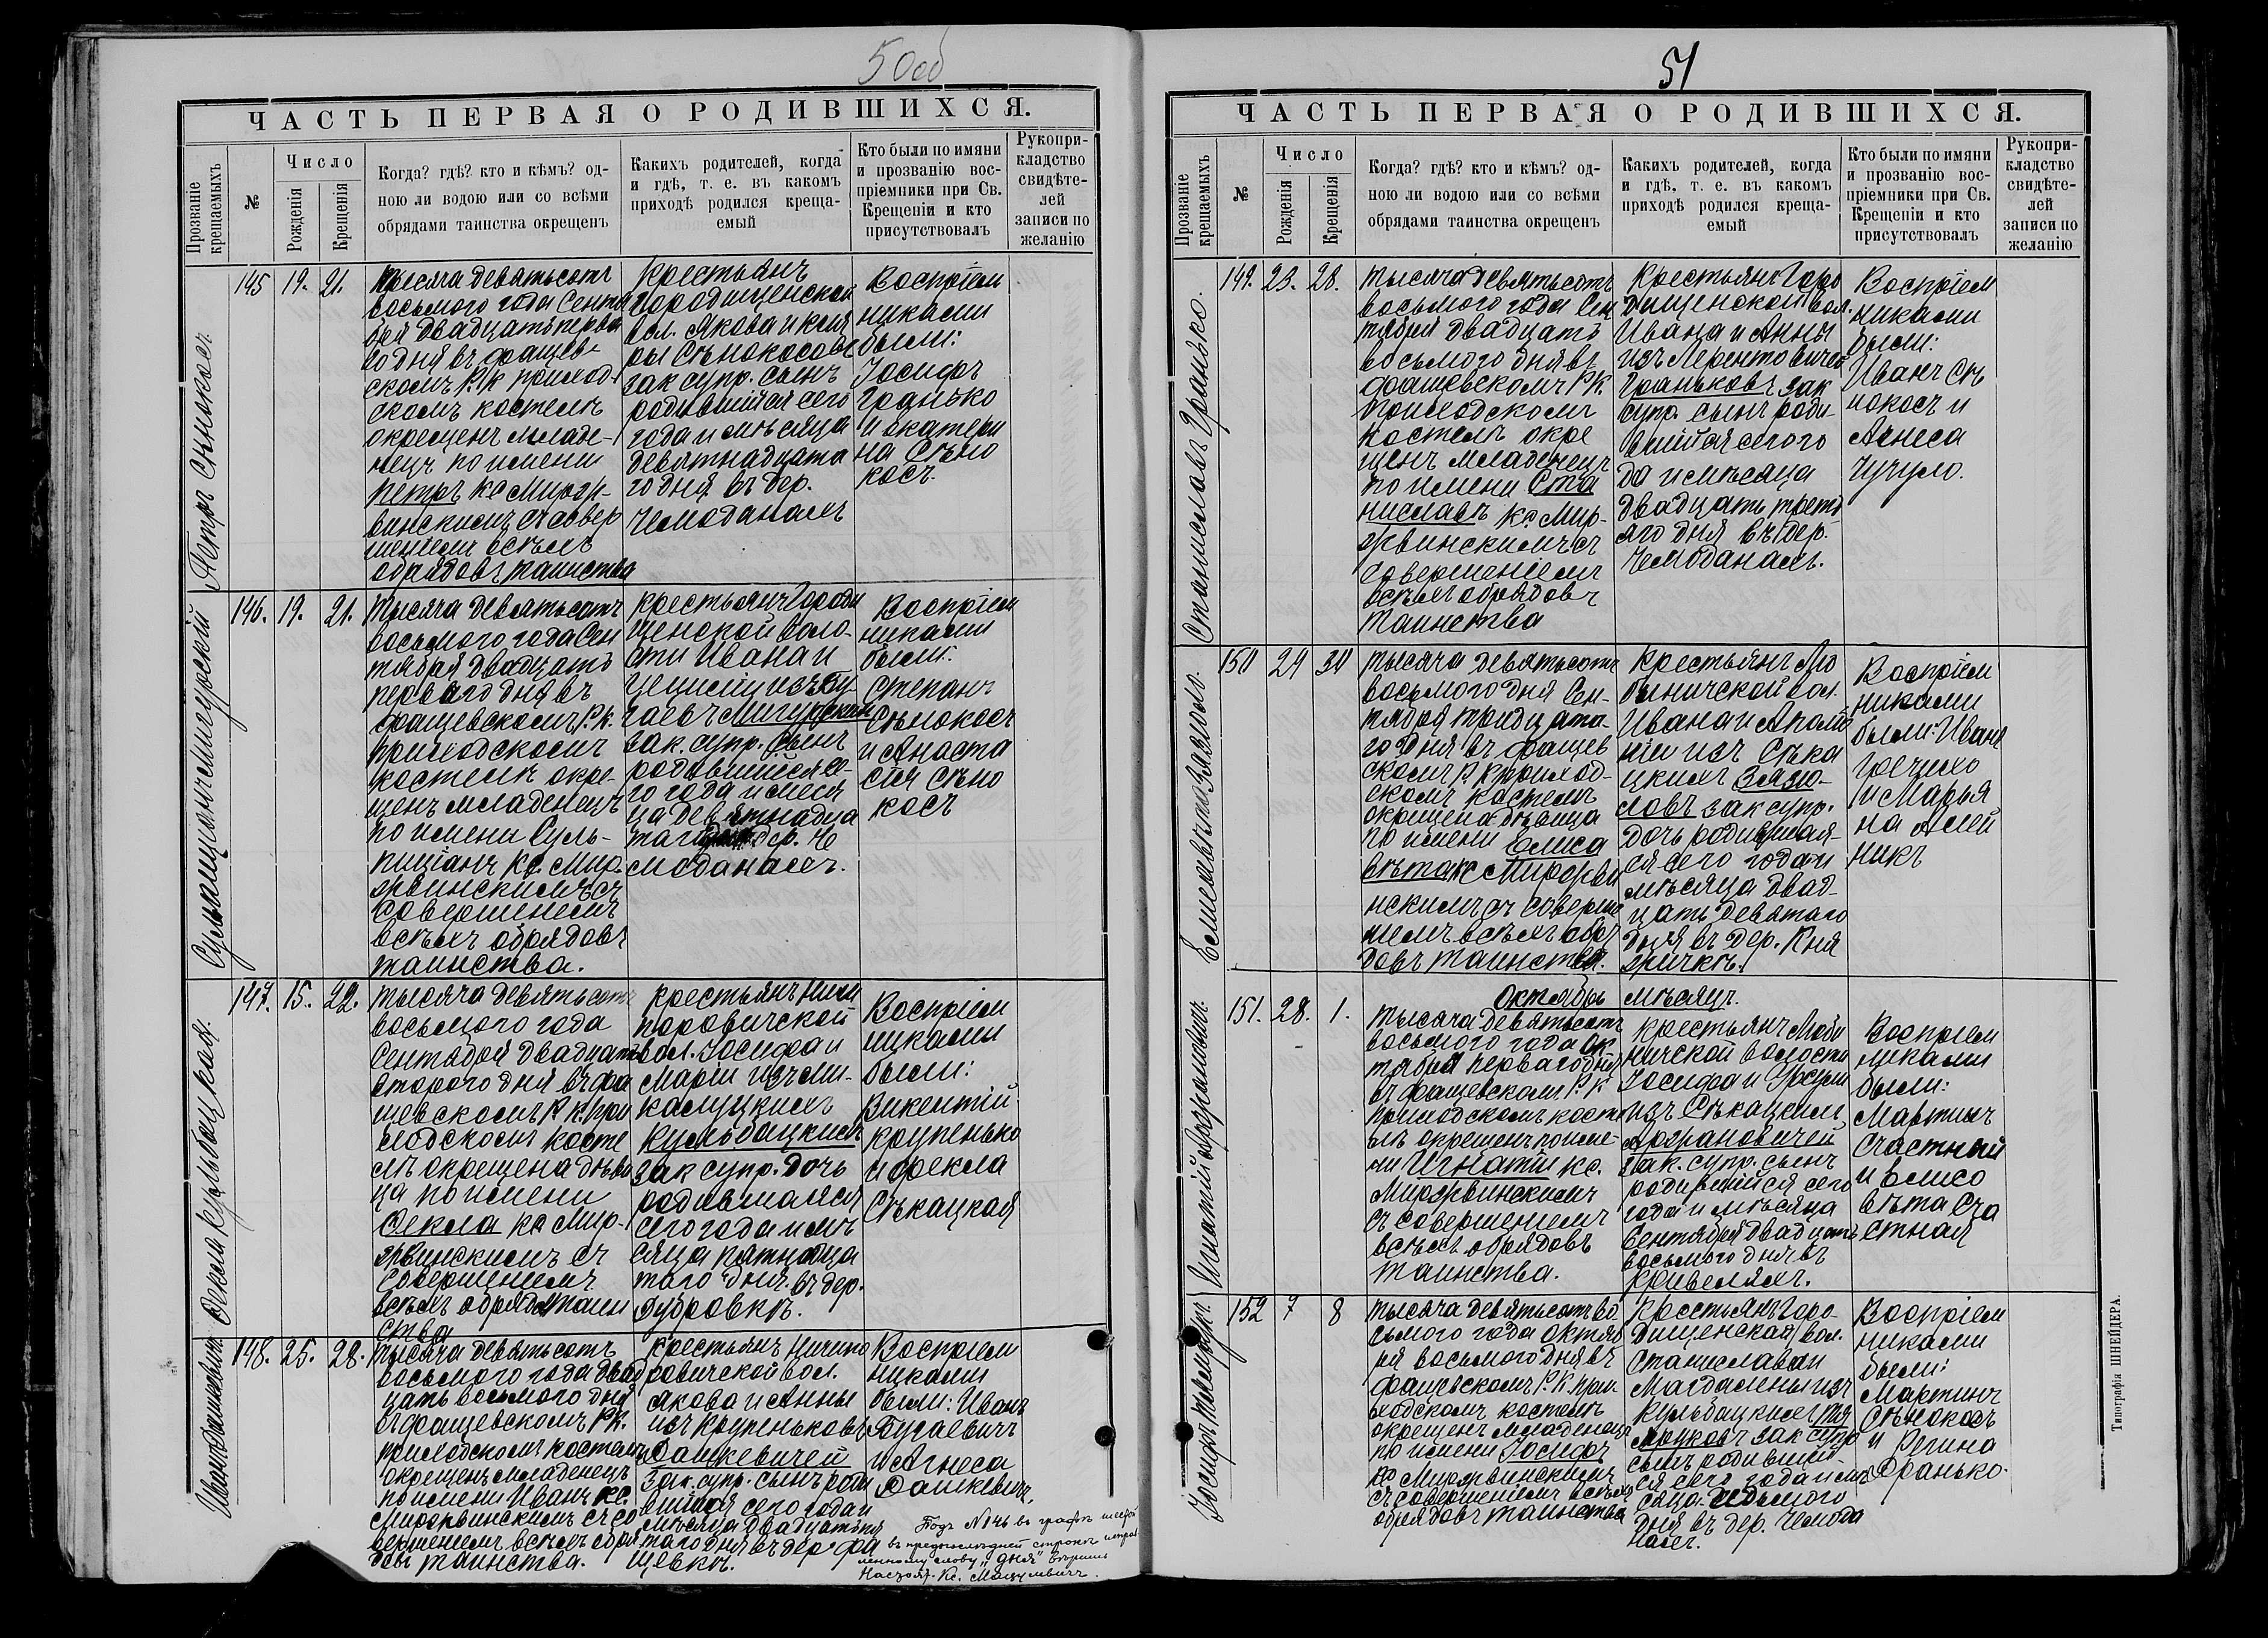 50об
ЧАСТЬ ПЕРВАЯ О РОДИВШИХСЯ.
Прозваніе крещаемыхъ
№
Число
Рожденія
Крещенія
Когда? гдѣ? кто и кѣмъ? од-
ною ли водою или со всѣми
обрядами таинства окрещенъ
Какихъ родителей, когда
и гдѣ, т. е. въ какомъ
приходѣ родился креща-
емый
Кто были по имяни
и прозванію вос-
пріемники при Св.
Крещеніи и кто
присутствовалъ
Рукопри-
кладство
свидѣте-
лей
записи по
желанію
Петръ Сѣнокосъ
145 19. 21.
Тысяча девятьсотъ
восьмого года Сентя
бря двадцать перва
го дня въ фащев-
скомъ Р.К приход-
скомъ костелѣ
окрещенъ младе-
нецъ по имени
Петръ кс Миргр-
винскимъ съ совер
шеніем всѣхъ
обрядовъ таинства
Крестьянъ
Городищенской
вол. Якова и
Сѣнокосовъ
зак супр. сынъ
родившійся сего
года и мѣсяца
девятнадцата
го дня въ дер.
Чемоданахъ
Воспріем
никами
были:
Іосифъ
Гранько
и Екатери
на Сѣно
косъ.
146. 19. 21.
Тысяча девятьсотъ
восьмого года Сен
тября двадцать
перваго дня въ
фащевскомъ Р.к.
приходскомъ
костелѣ окре-
щенъ младенецъ
по имени Суль-
пиціанъ Кс. Мир-
грвинскимъ съ
совершенемъ
всѣхъ обрядовъ
таинства.
Крестьянъ Городи
щенской воло-
сти Ивана и
зак. супр. сынъ
родившійся се-
го года и меся
ца девятнадца
таго дня дер. Че
моданахъ.
Воспріем
никами
были:
Степанъ
Сѣнокосъ
и Анаста
сія Сѣно
косъ
Ѳекла Кульбацкая.
147. 15. 22.
Тысяча девятьсотъ
восьмого года
Сентября двадцать
второго дня въ фа
щевскомъ Р К. при
ходскомъ косте
лѣ окрещена дѣви
ца по имени
Ѳекла кс Мир-
грвинскимъ съ
совершенемъ
всѣхъ обрядовъ таин
ства
Крестьянъ Ничи
поровичской
вол. Іосифа и
Маріи изъ Ми-
калуцкихъ
Кульбацкихъ
зак супр. дочь
родившаяся
сего года и мѣ
сяца пятнадца
таго дня въ дер.
Дубровкѣ.
Воспріем
никами
были:
Викентій
Крупенько
и Ѳекла
Сѣкацкая
Иванъ Дашкевичъ
148. 25. 28.
Тысяча девятьсотъ
восьмого года двад
цать восьмого дня
въ фащевскомъ Р.К.
приходскомъ костелѣ
окрещенъ младенецъ
по имени Иванъ кс.
Миргрвинскимъ съ со
вершенемъ всѣхъ обря
довъ таинства.
Крестьянъ Ничипо
ровичской вол.
Якова и Анны
изъ Крупеньковъ
Дашкевичей
Зак. супр. сынъ роди
вшійся сего года и
мѣсяца двадцать пя
таго дня въ дер. Фа
щевкѣ.
Воспріем
никами
были: Иванъ
Бугаевичъ
и Агнеса
Дашкевичъ.
Подъ № 146 въ графѣ шестой
въ предпослѣдней строкѣ исправ
ленному слову „дня" вѣрить
Настоят. Кс.
51
ЧАСТЬ ПЕРВАЯ О РОДИВШИХСЯ.
Прозваніе крещаемыхъ
№
Число
Рожденія
Крещенія
Когда? гдѣ? кто и кѣмъ? од-
ною ли водою или со всѣми
обрядами таинства окрещенъ
Какихъ родителей, когда
и гдѣ, т. е. въ какомъ
приходѣ родился креща-
емый
Кто были по имяни
и прозванію вос-
пріемники при Св.
Крещеніи и кто
присутствовалъ
Рукопри-
кладство
свидѣте-
лей
записи по
желанію
Станиславъ Гранько.
149. 23. 28.
Тысяча девятьсотъ
восьмого года Сен
тября двадцать
восьмого дня въ
фащевскомъ Р.К.
приходскомъ
костелѣ окре
щенъ младенецъ
по имени Ста
ниславъ Кс Мир-
грвинскимъ съ
совершеніемъ
всѣхъ обрядовъ
таинства
Крестьянъ Горо
дищенской вол.
Ивана и Анны
изъ Лерентовичей
Граньковъ зак
супр. сынъ роди
вшійся сего го
да и мѣсяца
двадцать треть
яго дня въ дер.
Чемоданахъ.
Воспріем
никами
были:
Иванъ Сѣ
нокосъ и
Агнеса
Чучуло.
150 29 30
Тысяча девятьсотъ
восьмого дня Сен-
тября тридцата-
го дня въ фащев
скомъ Р К приход-
скомъ костелѣ
окрещена дѣвица
по имени Елиса
вѣта Кс Миргрви
нскимъ съ соверше
ніемъ всѣхъ обря
довъ таинства.
Крестьянъ
вол.
Ивана и Апало
ніи изъ Сѣка
цкихъ
зак супр.
дочь родившая-
ся сего года и
мѣсяца двад-
цать девятаго
дня въ дер. Кня
жичкѣ.
Воспріем
никами
были: Иванъ
Гречихо
и Марья
на Алей
никъ
Октябрь мѣсяцъ.
151. 28. 1.
Тысяча девятьсотъ
восьмого года Ок
тября перваго дня
въ фащевскомъ Р.К
приходскомъ косте
лѣ окрещенъ по име-
ни Игнатій кс.
Миргрвинскимъ
съ совершеніемъ
всѣхъ обрядовъ
таинства.
Крестьянъ
волости
Іосифа и Урсули
изъ Сѣкацкихъ
зак. супр. сынъ
родившійся сего
года и мѣсяца
Сентября двадцать
восьмого дня въ
Кривеляхъ.
Воспріем
никами
были:
Мартинъ
Счастный
и Елисо
вѣта Сча
стная
152 7 8
Тысяча девятьсотъ во
сьмого года Октяб
ря восьмого дня въ
фащевскомъ Р.К. при-
ходскомъ костелѣ
окрещенъ младенецъ
по имени Іосифъ
кс Миргрвинскимъ
съ совершеніемъ всѣхъ
обрядовъ таинства
Крестьянъ Горо-
дищенская вол.
Станислава и
Магдалены изъ
Кульбацкихъ
зак супр
сынъ родивший-
ся сего года и мѣ
сяца седьмого
дня въ дер. Чемода
нахъ.
Воспріем
никами
были:
Мартинъ
Сѣнокосъ
и Регина
Гранько.
Типографія ШНЕЙДЕРА.